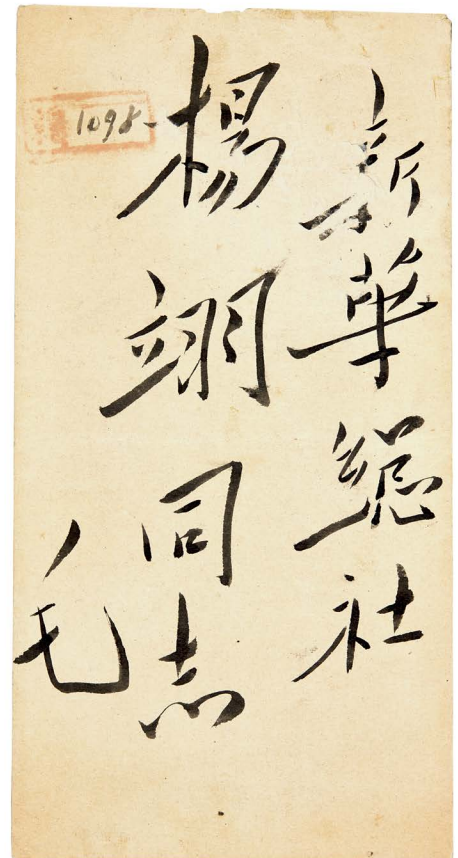 新華總社
楊翊同志
毛
1098-